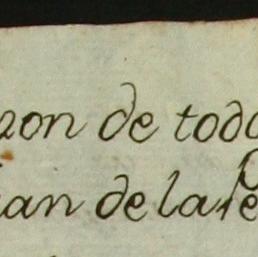 zon de todo
ian de la Pe